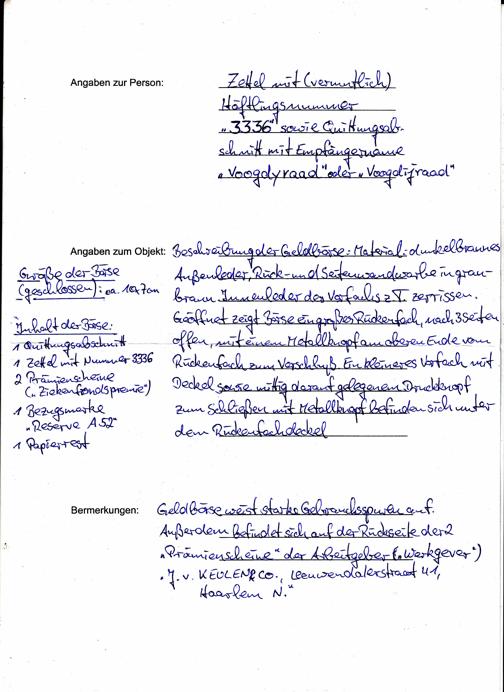 Angaben zur Person:
Zettel mit (vermutlich)
Häftlingsnummer
"3336" sowie Quittungsab-
schnitt mit Empfängername
"Voogdyraad" oder "Voogdijraad"
Angaben zum Objekt:
Beschreibung der Geldbörse: Material: dunkelbraunes
Außenleder, Rück- und Seitenwand in grau-
braun. Innenleder des Vorfachs z.T. zerrissen.
Geöffnet zeigt Börse ein großes Rückenfach, nach 3 Seiten
offen, mit einem Metallknopf am oberen Ende vom
Rückenfach zum Verschluß. Ein kleineres Vorfach mit
Deckel sowie mittig darauf gelegenem Druckknopf
zum Schließen mit Metallknopf befinden sich unter
dem Rückenfachdeckel
Größe der Börse
(geschlossen): ca. 10x7cm
Inhalt der Börse:
1 Quittungsabschnitt
1 Zettel mit Nummer 3336
2 Prämienscheine
("Ziekenfondspremie")
1 Bezugsmarke
"Reserve A52"
1 Papierrest
Bermerkungen:
Geldbörse weist starke Gebrauchsspuren auf.
Außerdem befindet sich auf der Rückseite der 2
"Prämienscheine" der Arbeitgeber ("Werkgever")
"J. v. KEULEN & CO., Leeuwendalerstraat 41,
Haarlem N."